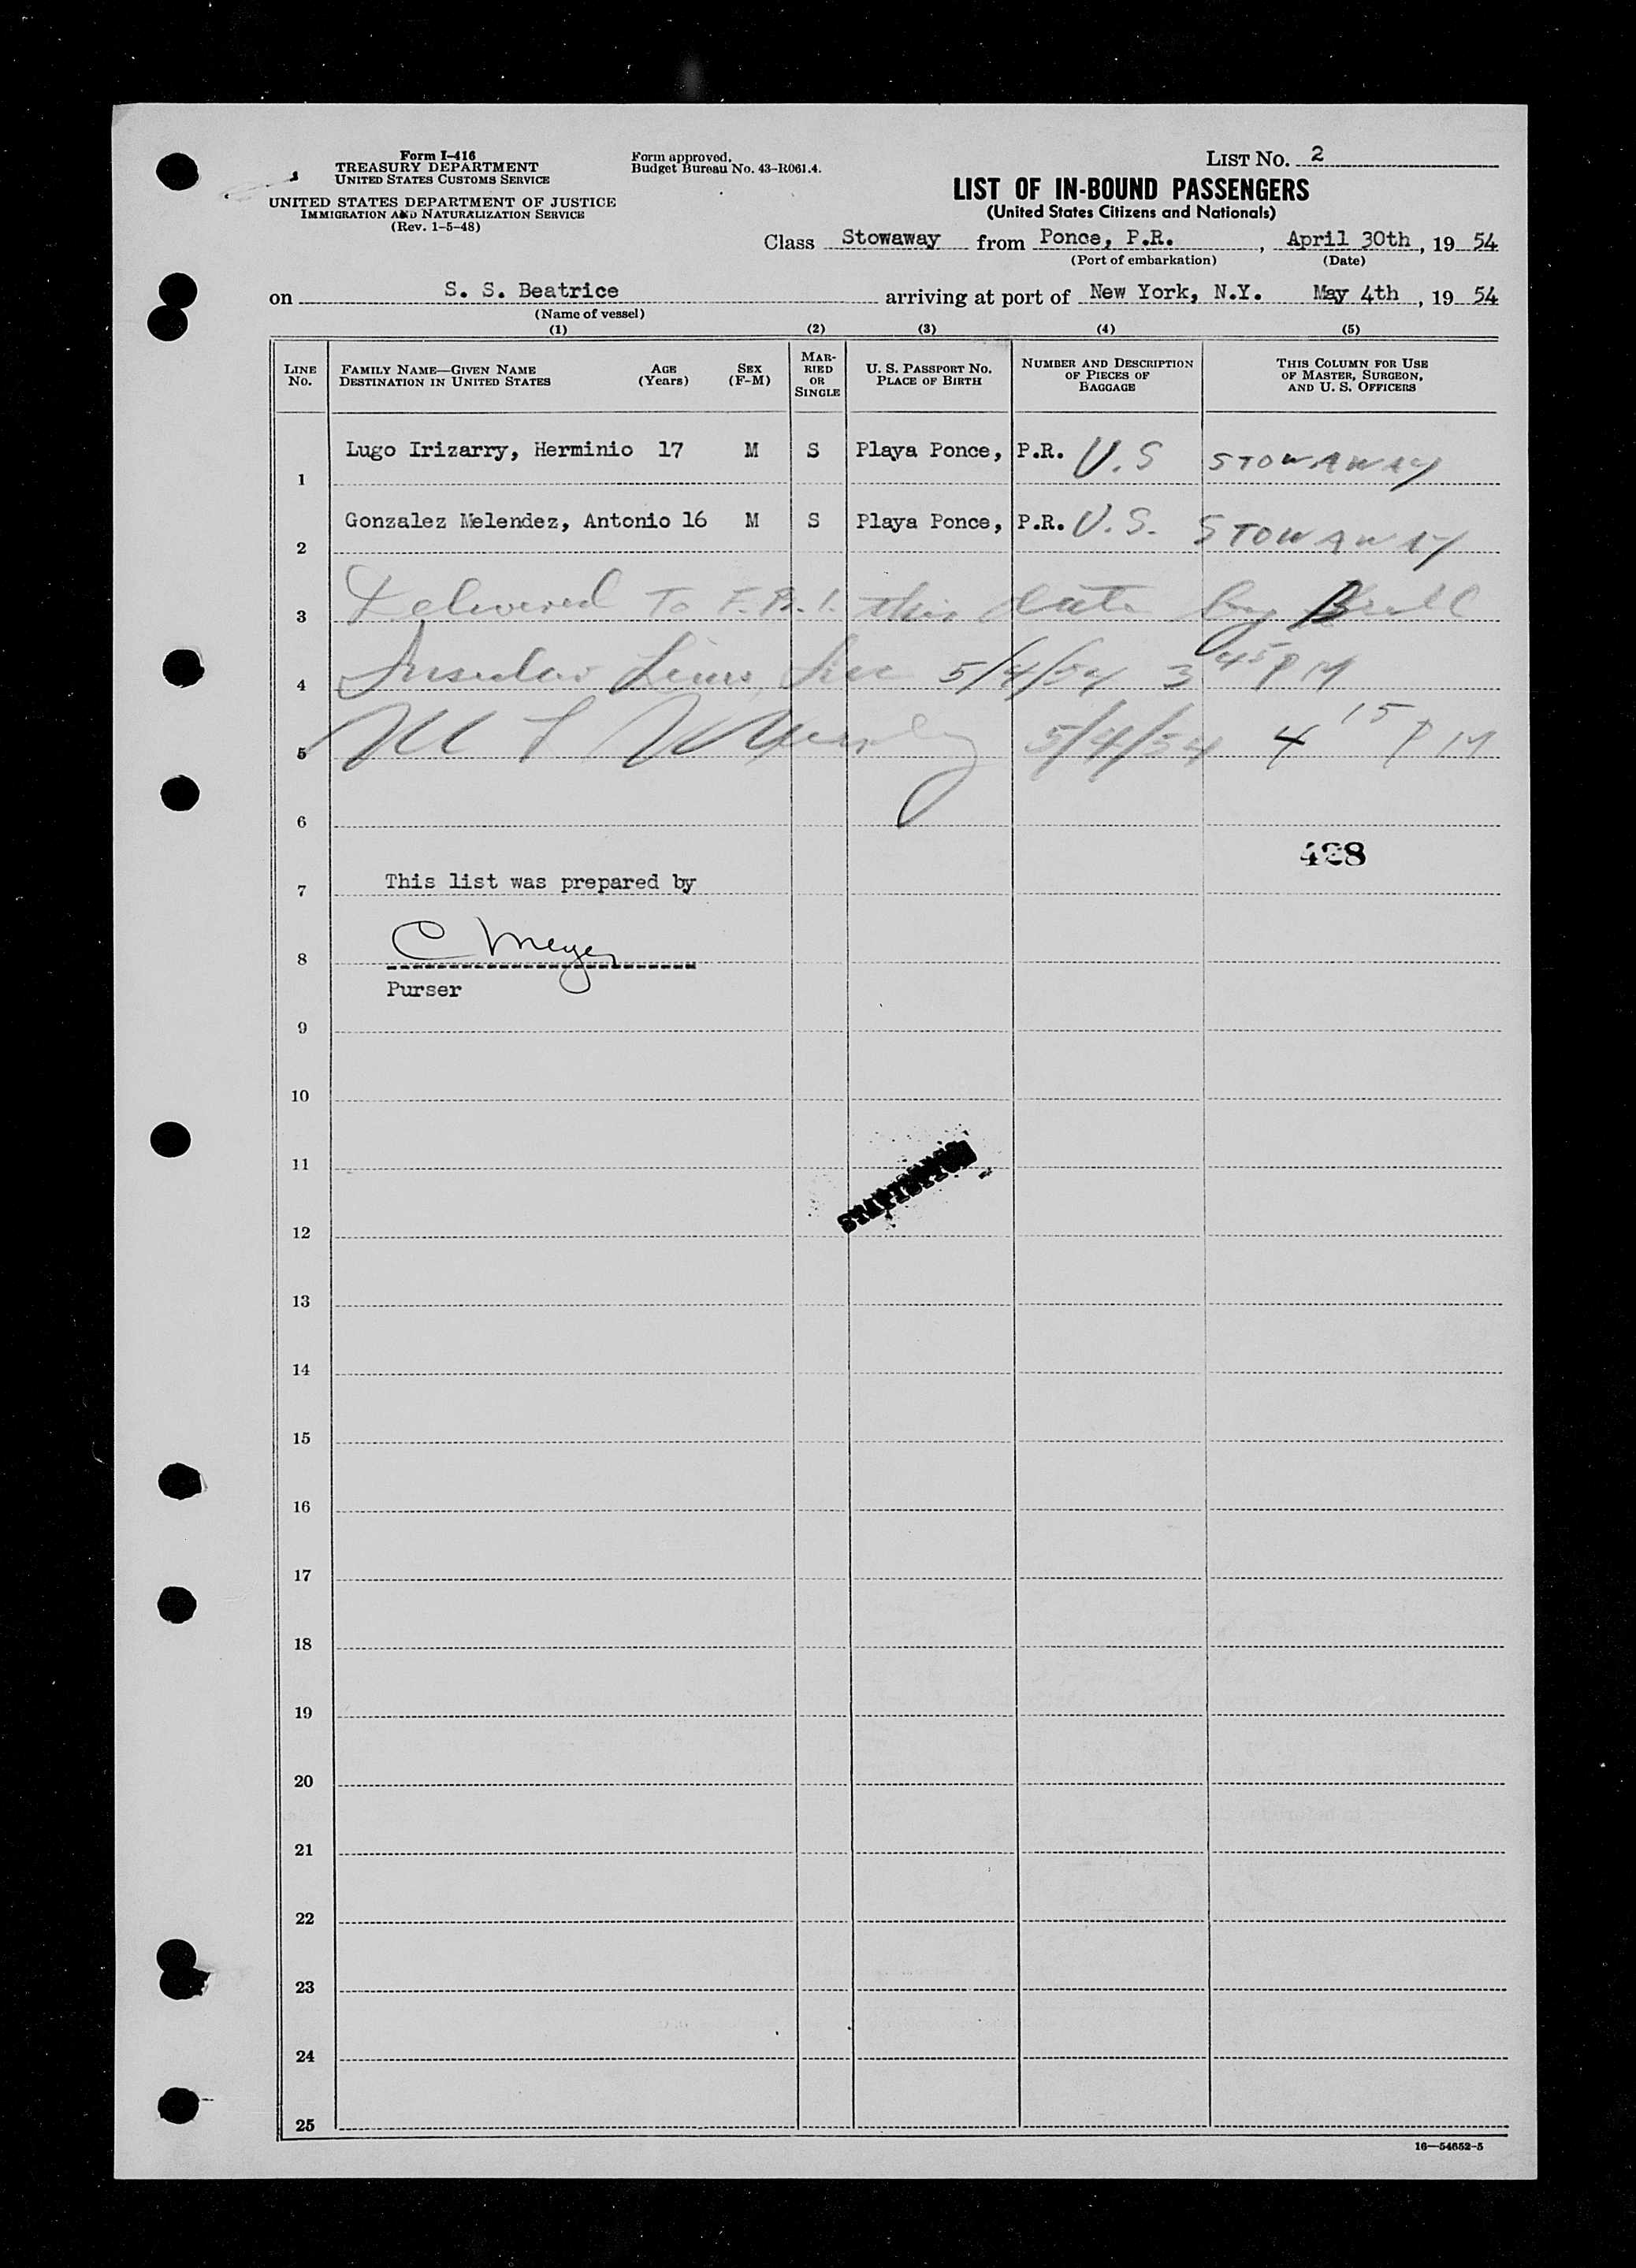 Form I-416
TREASURY DEPARTMENT
UNITED STATES CUSTOMS SERVICE
UNITED STATES DEPARTMENT OF JUSTICE
IMMIGRATION AND NATURALIZATION SERVICE
(Rev. 1-5-48)
Form approved.
Budget Bureau No. 43-R061.4.
LIST NO. 2
LIST OF IN-BOUND PASSENGERS
(United States Citizens and Nationals)
Class Stowaway from Ponce, P.R., April 30th, 19 54
(Port of embarkation) (Date)
on S. S. Beatrice arriving at port of New York, N.Y. May 4th, 19 54
(Name of vessel)
(1) (2) (3) (4) (5)
LINE NO.
FAMILY NAME—GIVEN NAME
DESTINATION IN UNITED STATES
AGE (Years)
SEX (F-M)
MARRIED OR SINGLE
U. S. PASSPORT NO.
PLACE OF BIRTH
NUMBER AND DESCRIPTION OF PIECES OF BAGGAGE
THIS COLUMN FOR USE OF MASTER, SURGEON, AND U. S. OFFICERS
1 Lugo Irizarry, Herminio 17 M S Playa Ponce, P.R. U.S STOWAWAY
2 Gonzalez Melendez, Antonio 16 M S Playa Ponce, P.R. U.S. STOWAWAY
3 Delivered To F.B.I. this date by Bull
4 Insular Lines, Inc 5/4/54 3 45 PM
5 5/4/54 4 15 PM
6
428
7 This list was prepared by
8 C Meyer
Purser
9
10
11
12
STATISTICS
13
14
15
16
17
18
19
20
21
22
23
24
25
16—54652-5